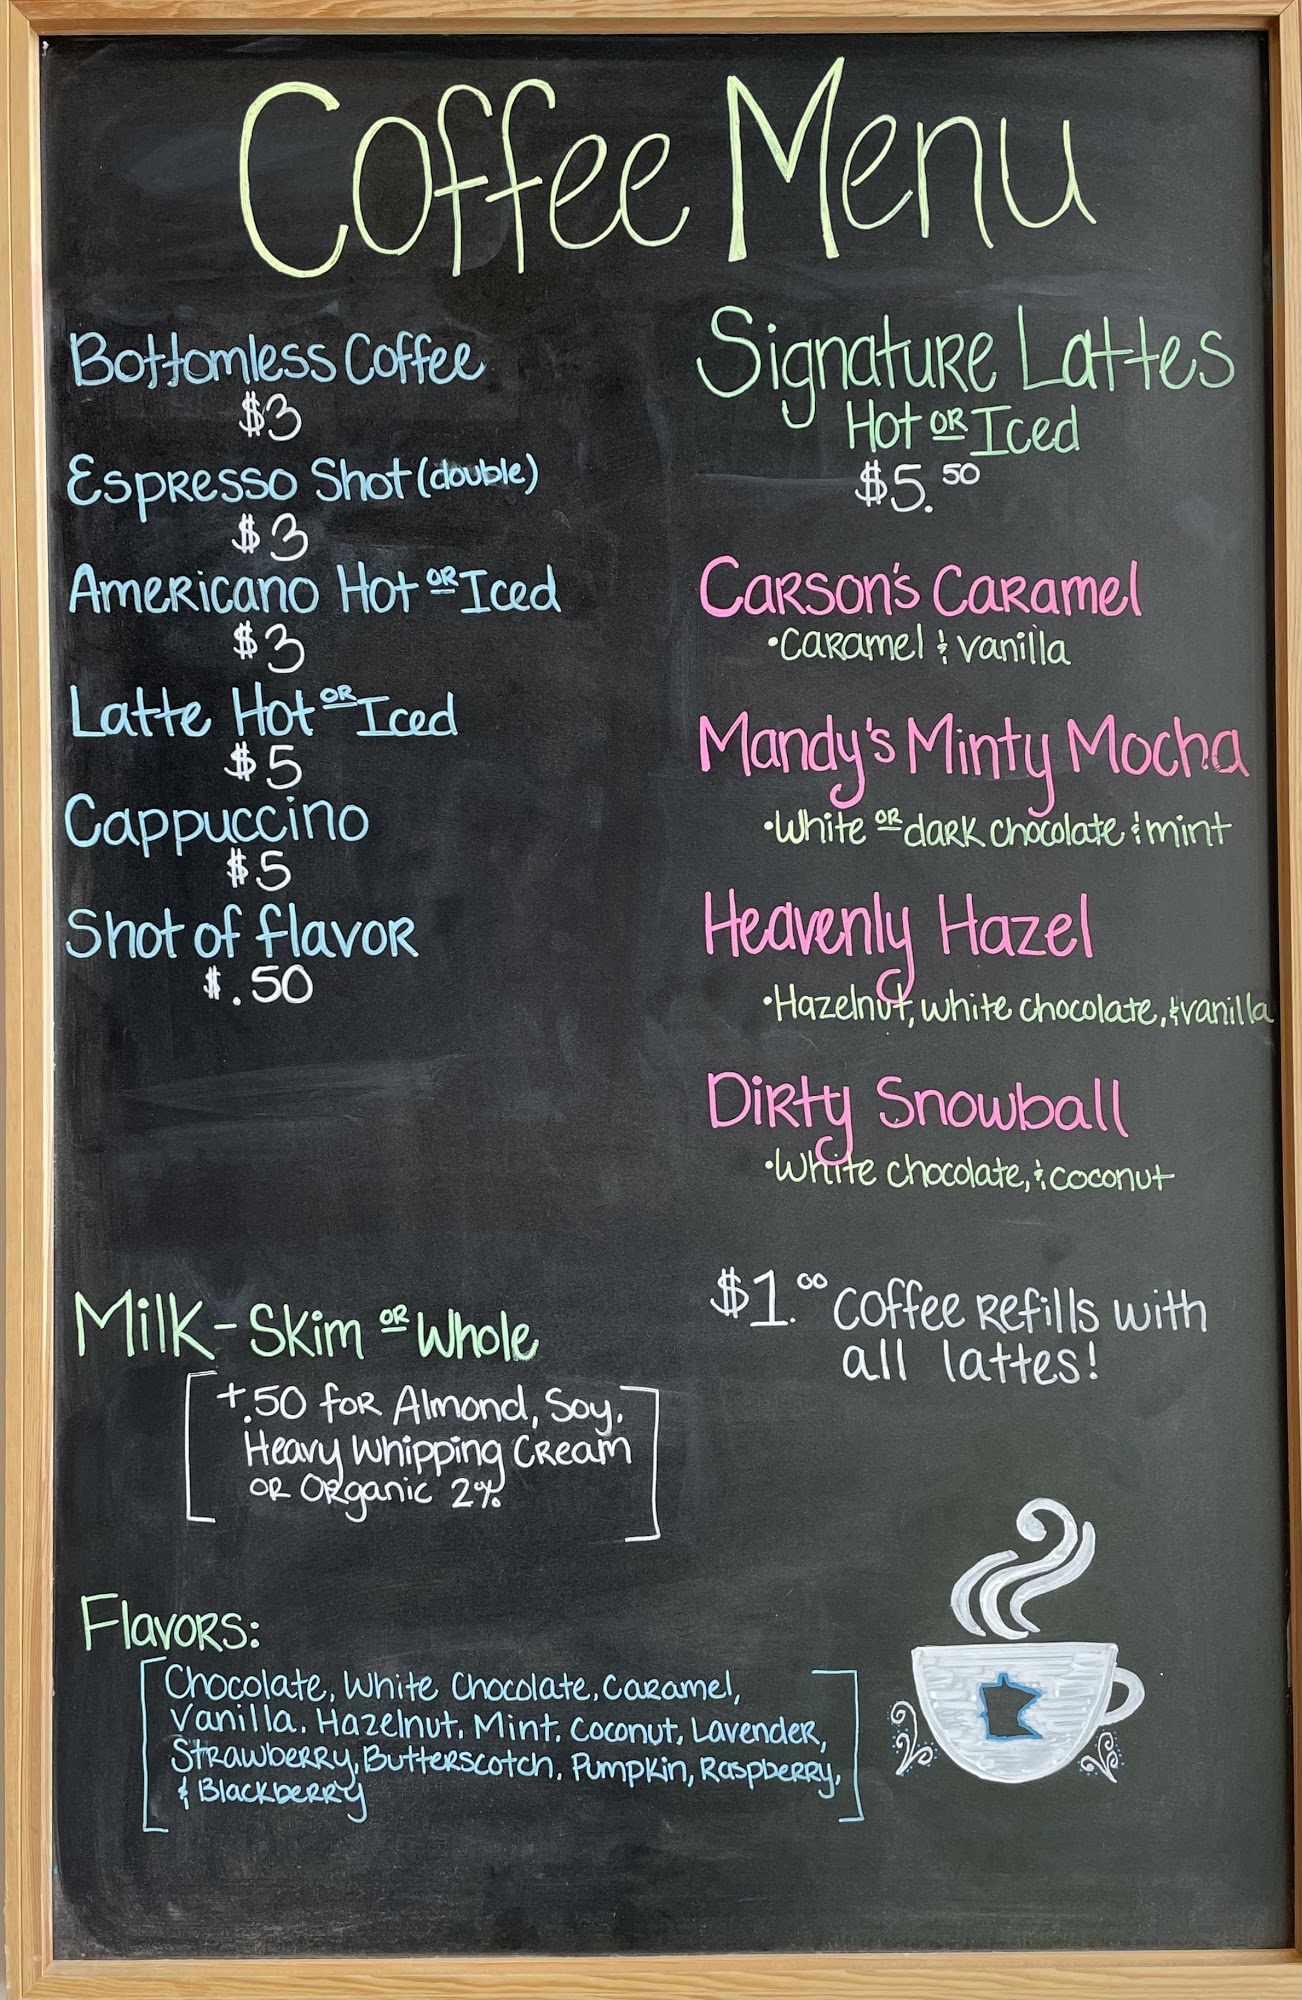 Coffee Menu
Bottomless Coffee
$3
Espresso Shot (double)
$3
Americano Hot or Iced
$3
Latte Hot or Iced
$5
Cappuccino
$5
Shot of flavor
$.50
Signature Lattes
Hot or Iced
$5.50
Carson's Caramel
•Caramel & vanilla
Mandy's Minty Mocha
•White or dark chocolate & mint
Heavenly Hazel
•Hazelnut, white chocolate, & vanilla
Dirty Snowball
•White chocolate, & coconut
$1.00 coffee refills with
all lattes!
Milk - Skim or Whole
+.50 for Almond, Soy,
Heavy Whipping Cream
or Organic 2%
Flavors:
Chocolate, White Chocolate, Caramel,
Vanilla, Hazelnut, Mint, Coconut, Lavender,
Strawberry, Butterscotch, Pumpkin, Raspberry,
& Blackberry